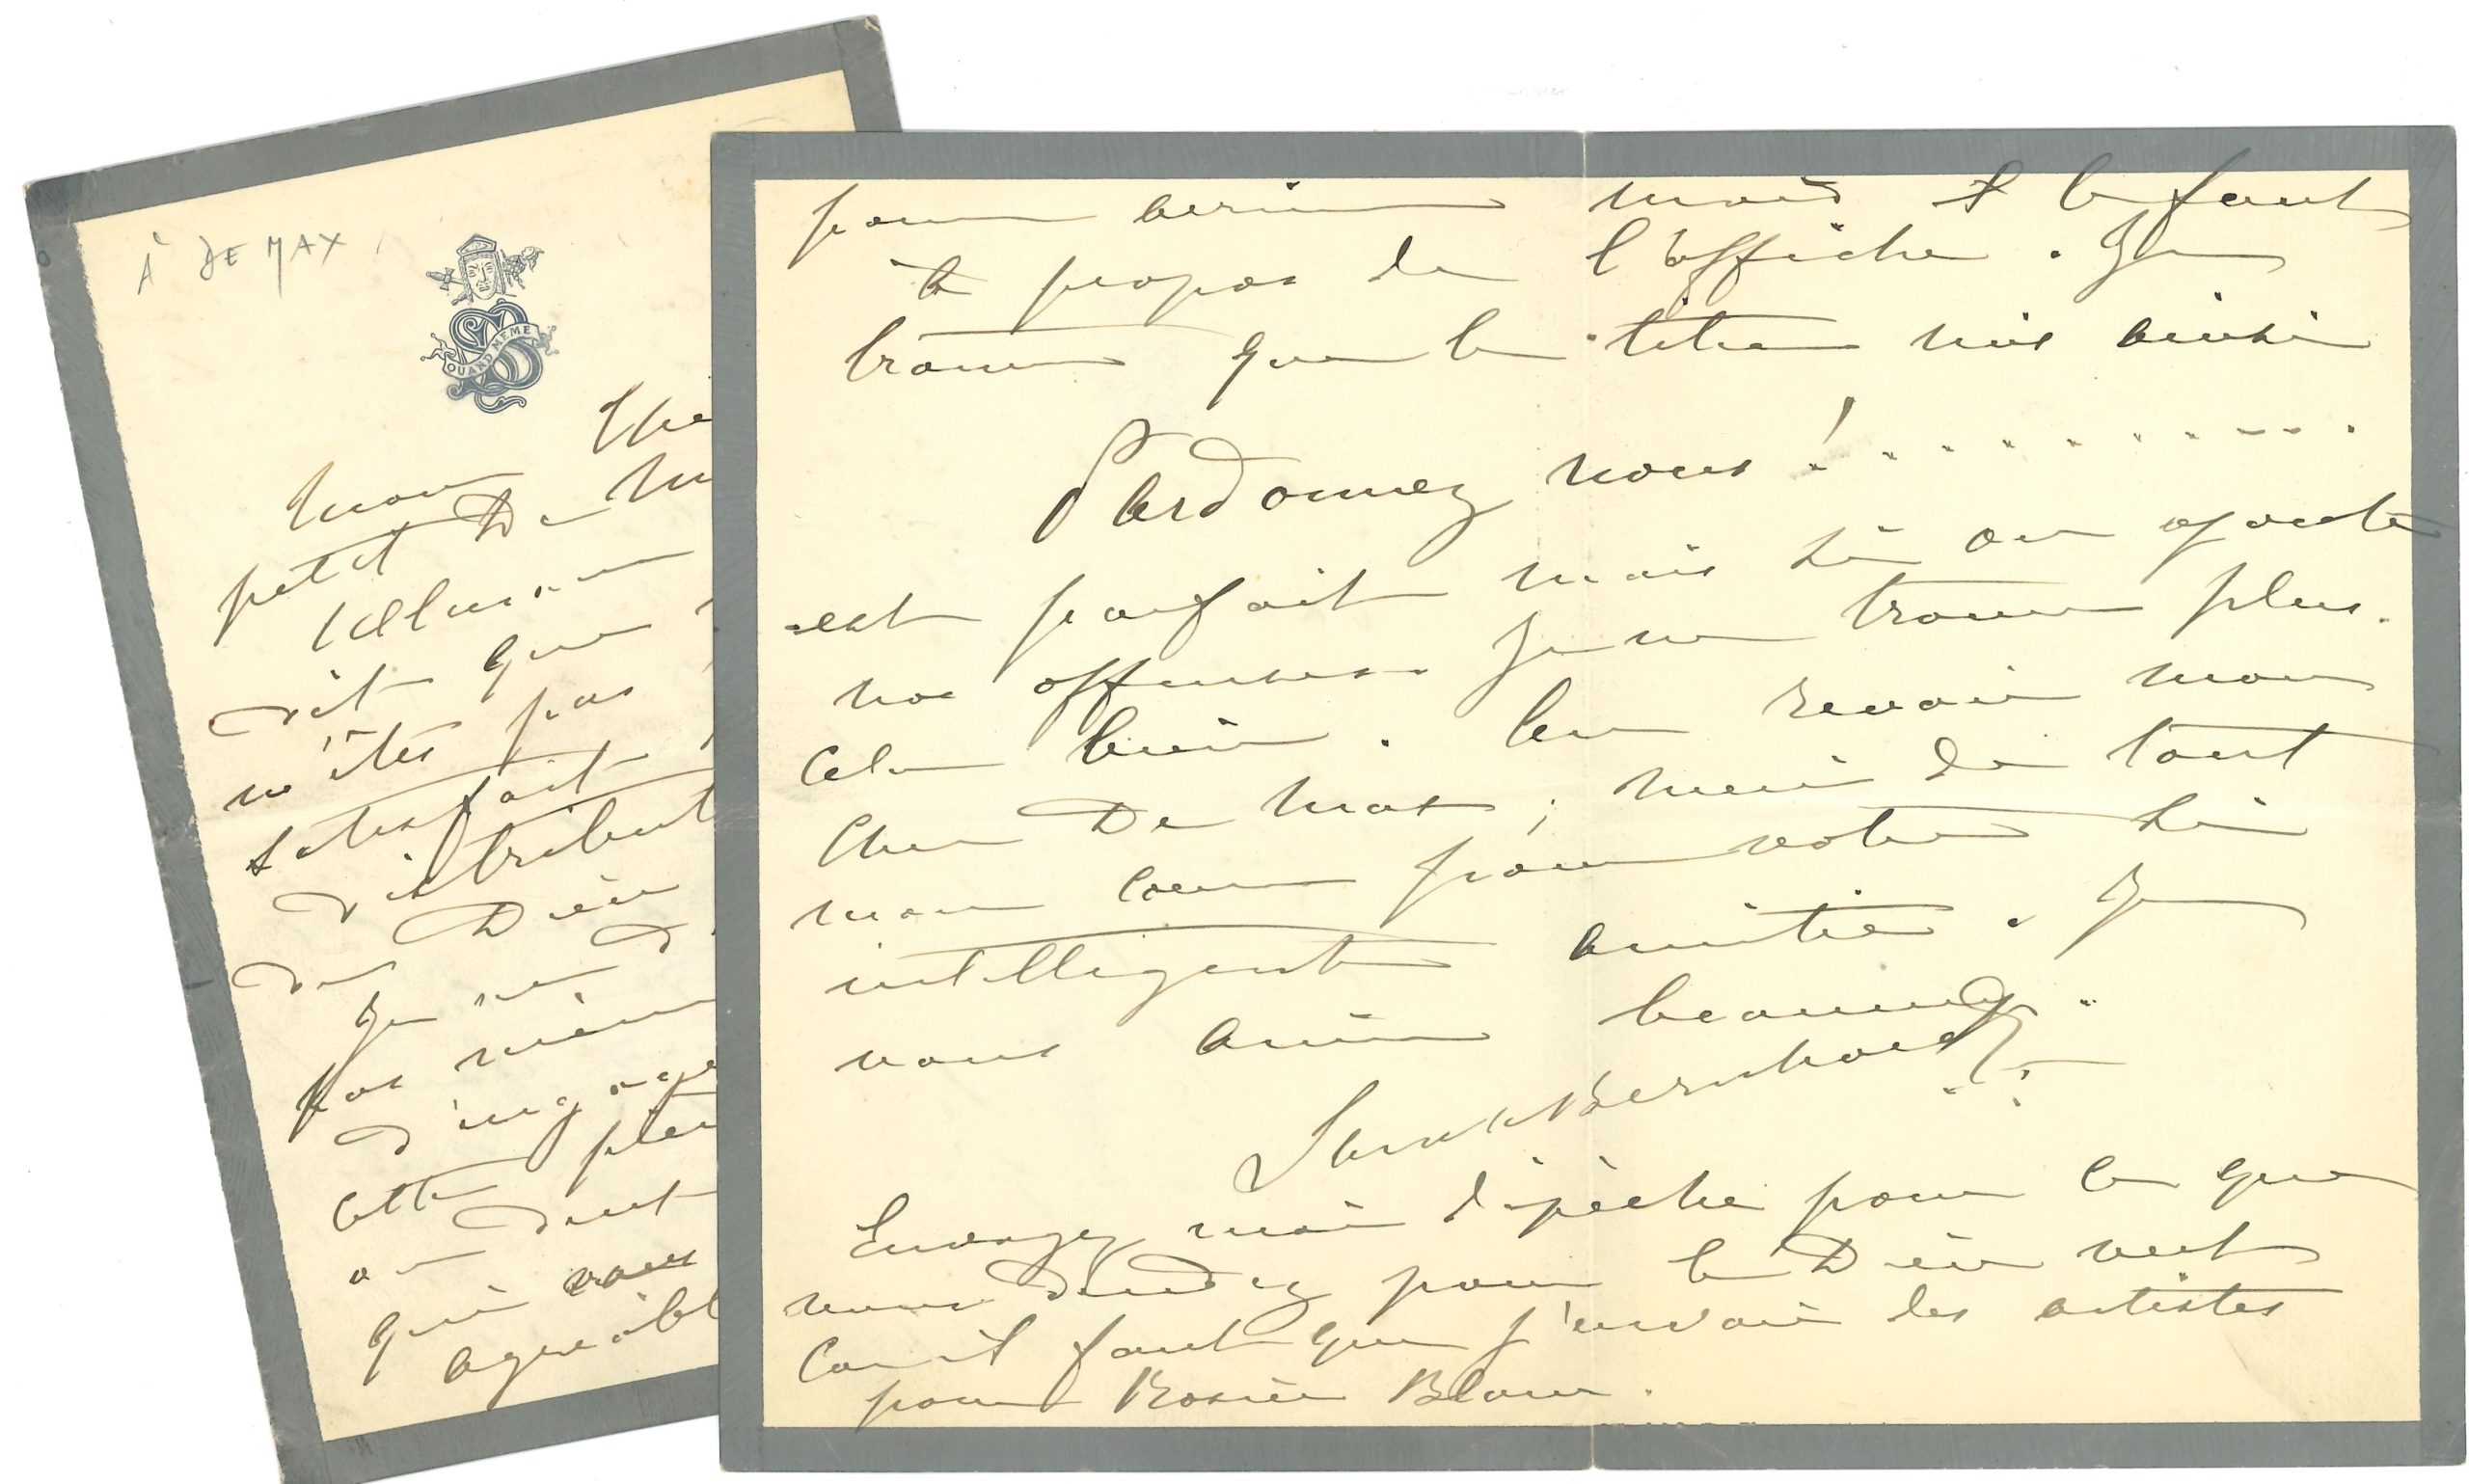 À DE MAX
QUAND MEME
mon
petit De
dit que
n'êtes pas
satisfait
Dieu
Je ne
pas
cette
on doit
qui vous
pour mais il le faut
à propos de l'affiche. Je
trouve que le titre mis ainsi
Pardonnez nous! . . . . . . . . .
est parfait mais si on ajoute
nos offenses je ne trouve plus
cela bien. Au revoir mon
cher De Max, merci de tout
mon cœur pour votre si
intelligente amitié. Je
vous aime beaucoup.
Sarah Bernhardt
Envoyez moi dépêche pour ce que
vous décidez pour le Dieu vert
car il faut que j'envoie les artistes
pour Rosier Blanc.